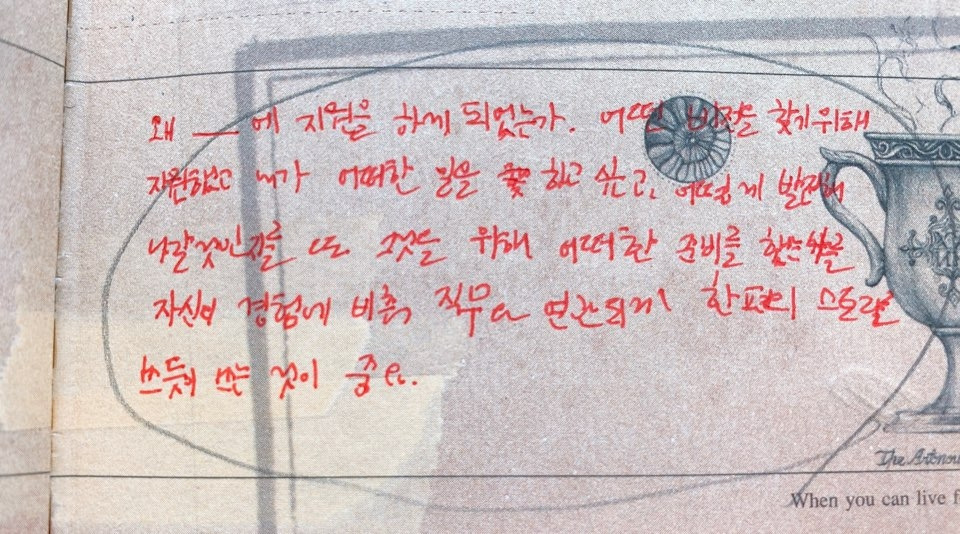 왜 — 에 지원을 하게 되었는가. 어떤 비전을 찾기위해
지원했고 내가 어떠한 일을 하고 싶고, 어떻게 발전해
나갈것인지를 또 그것을 위해 어떠한 준비를 했는지를
자신의 경험에 비춰 직무와 연관되게 한편의 스토리를
쓰듯이 쓰는 것이 중요.
The Artnou
When you can live f